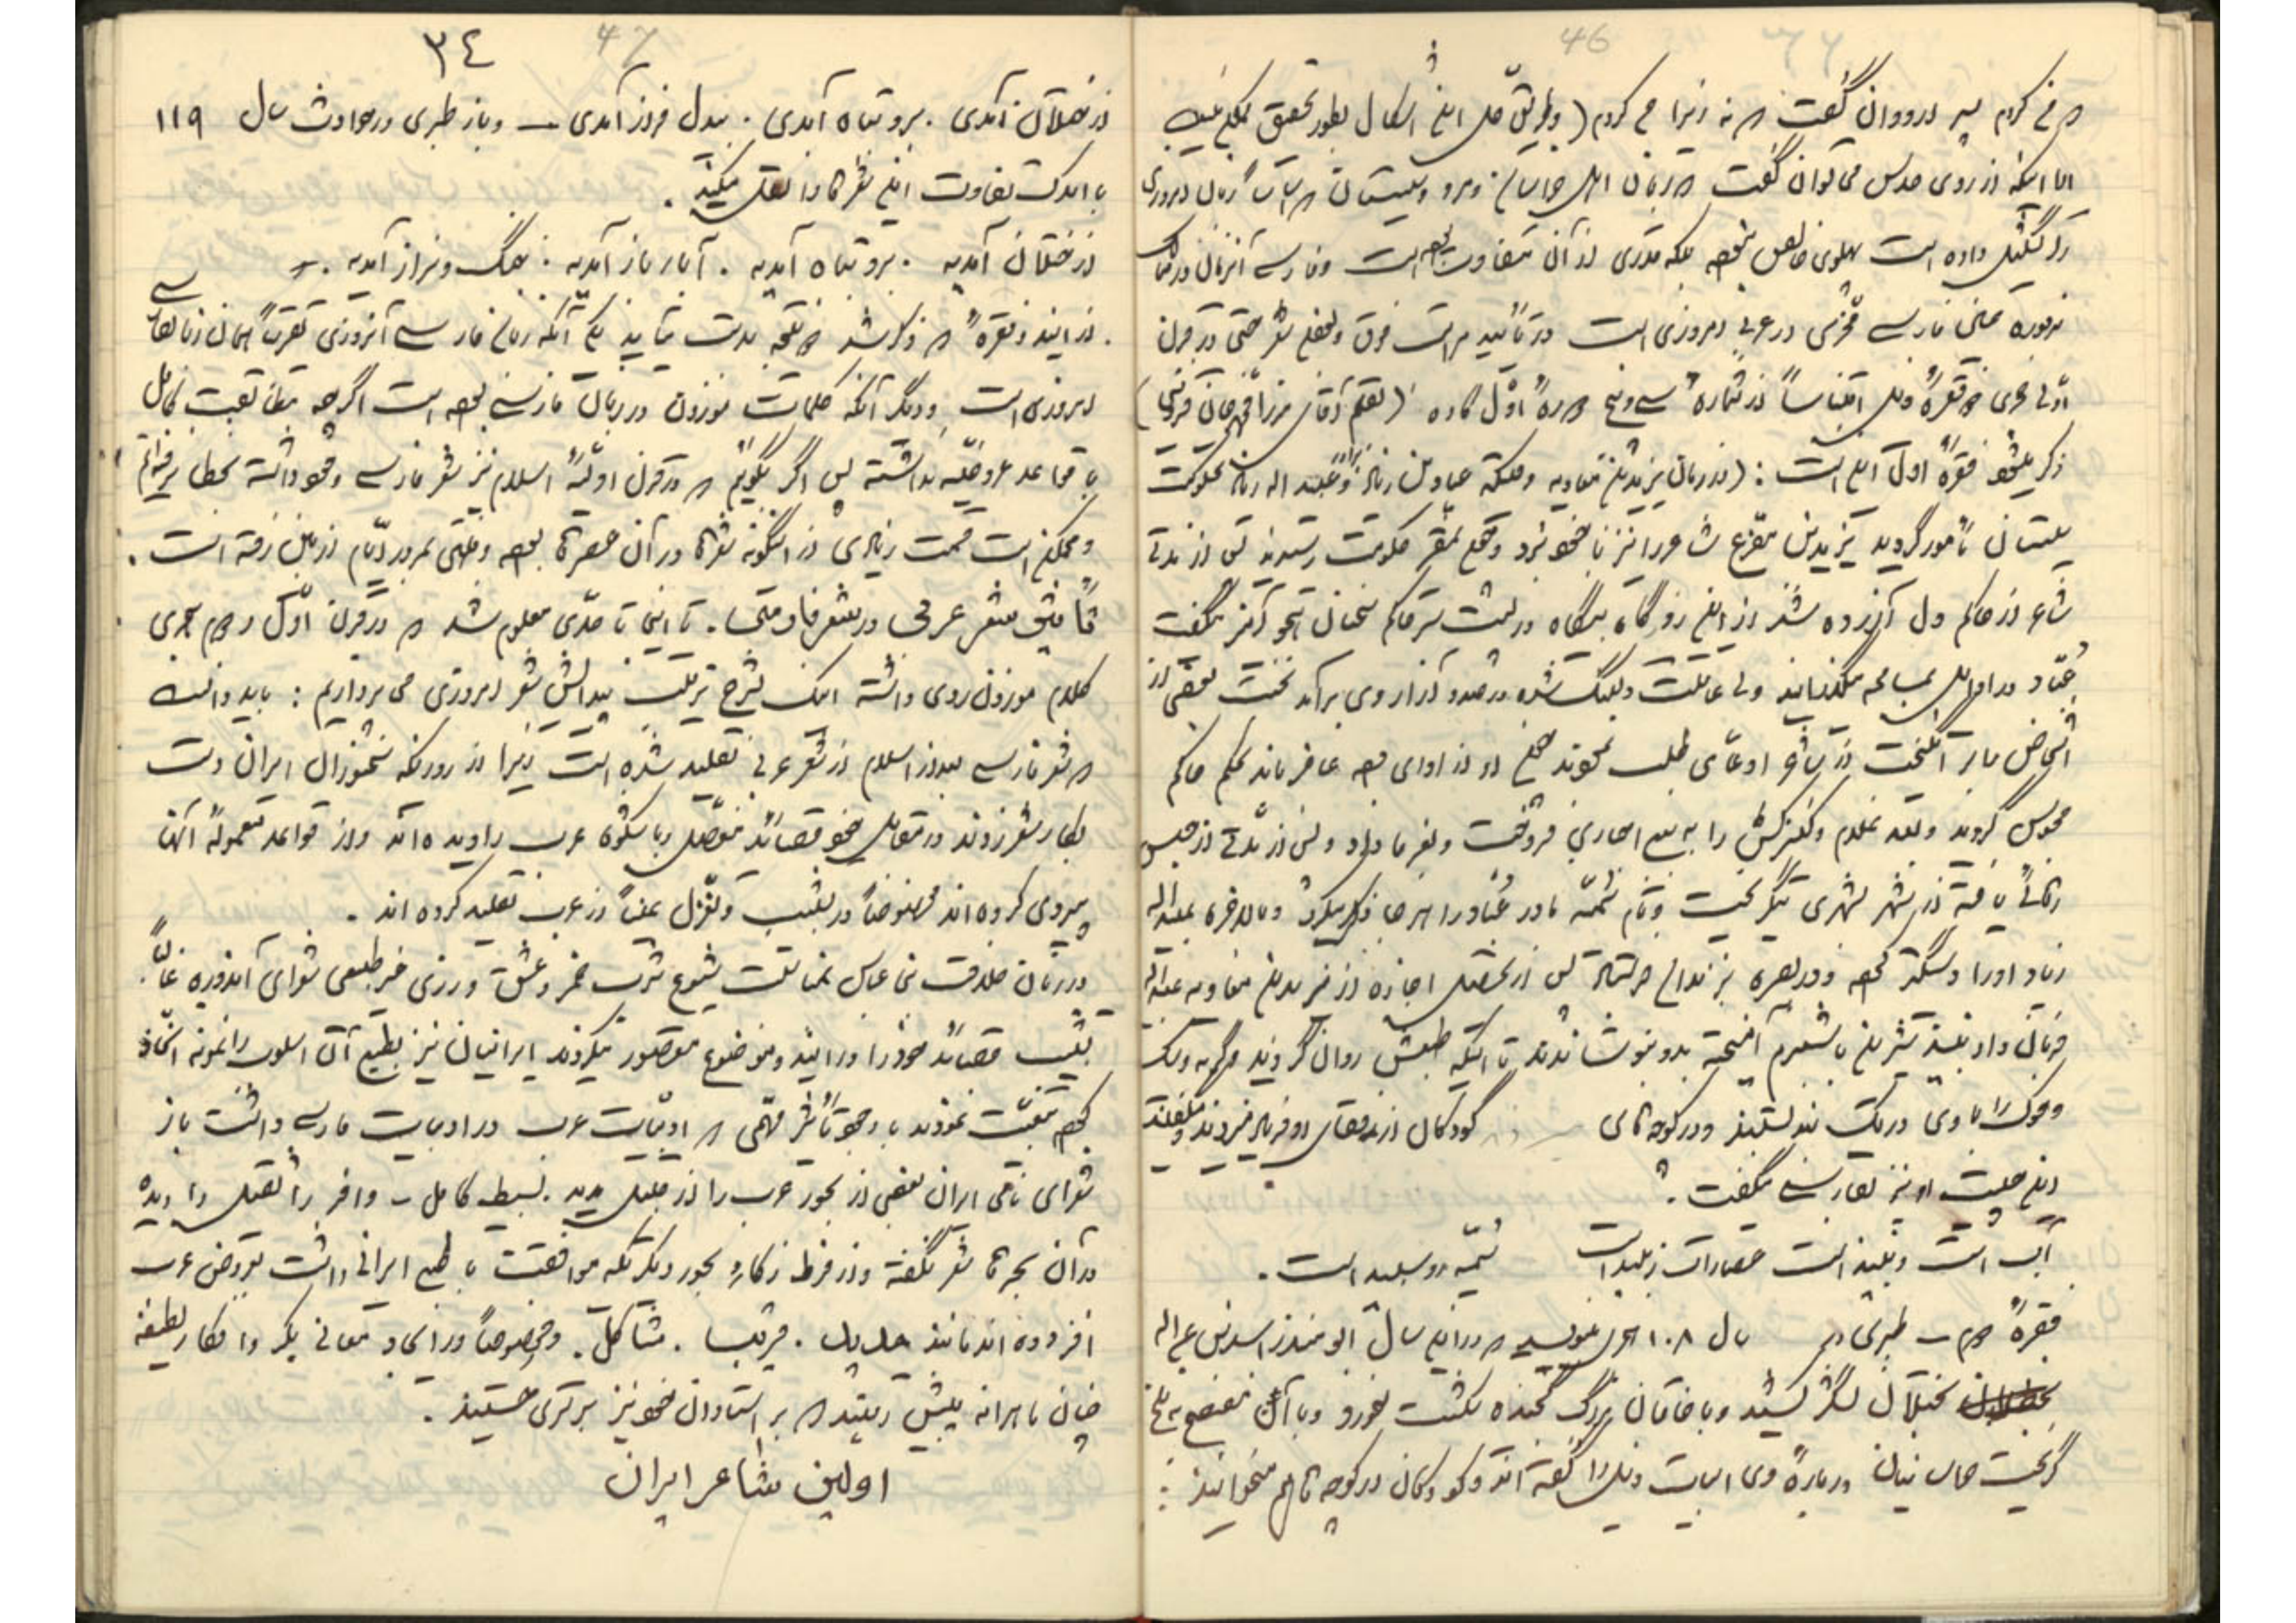 46
اما اینکه از روی حدس می توان گفت که زبان اهل خراسان و مرو و سیستان که اساس زبان امروزی
را تشکیل داده است پهلوی خالص نبوده بلکه قدری از آن متفاوت بوده است و فارسی آنزمان در
مذکوره همان فارسی امروزی است و در تأیید مراتب فوق و بعضی شعر حتی در قرن
اول هجری دو فقره ذیل اقتباساً از شماره سی و پنج دوره اول کاوه (بقلم آقای میرزا محمد خان قزوینی)
ذکر میشود فقره اول این است : (در زمان یزید بن معاویه وقتیکه عباد بن زیاد برادر عبید اله زیاد بحکومت
سیستان مأمور گردید یزید بن مفرغ شاعر را نیز با خود برد و چون بمقر حکومت رسیدند پس از مدتی
شاعر از حاکم دل آزرده شد از این رو گاه بیگاه در پشت سر حاکم سخنان هجو آمیز میگفت
عباد در اوایل بمسامحه میگذرانید ولی عاقبت دلتنگ شده در صدد آزار وی برآمد نخست بعضی از
اشخاص را بر انگیخت از شاعر ادعای طلب نمودند چون او از ادای وجه عاجز ماند بحکم حاکم
محبوس گردید و بعد غلام و کنیزکش را به بیع اجباری فروخت و بغرما داد و پس از مدتی از حبس
رهائی یافته از شهر بشهری میگریخت و نام سمیّه مادر عباد را هر جا ذکر میکرد و بالاخره عبید اله
زیاد او را دستگیر نموده و در بصره بزندان فرستاد پس از تحصیل اجازه از یزید بن معاویه عبید اله
فرمان داد نبیذ شیرین با شبرم آمیخته بدو بنوشانیدند تا اینکه طبعش روان گردید و گربه و سگ
و خوک را با وی در یک بند بستند و در کوچه های
کودکان از قفای او فریاد میزدند و میگفتند
این چیست او نیز بفارسی میگفت :
آب است و نبیذ است عصارات زبیب است
سمیّه رو سپید است .
فقره دوم – طبری در سال ۱۰۸ هجری مینویسد که در این سال ابو منذر اسد بن عبد اله
بختلان لشگر کشید و با خاقان بزرگ جنگیده شکست بخورد و با آن مفتضح به بلخ
گریخت خراسانیان درباره وی ابیات ذیل را گفته اند و کودکان در کوچه ها میخوانند :
47
٣٤
از ختلان آمدی . برو تباه آمدی . بیدل فراز آمدی – و باز طبری در حوادث سال ۱۱۹
با اندک تفاوت این شعرها را نقل میکند .
از ختلان آمدیه . برو تباه آمدیه . آبار باز آمدیه . خشگ و نزار آمدیه .
از ایندو فقره که ذکر شد دو نتیجه بدست میاید یکی آنکه زبان فارسی آنروزی تقریباً همان زبان فارسی
امروزی است و دیگر آنکه کلمات موزون در زبان فارسی بوده است اگرچه مطابقت کامل
با قواعد عروضیّه نداشته پس اگر بگوئیم که در قرن اولیّه اسلام نیز شعر فارسی وجود داشته بخطا نرفته ایم
و ممکن است قسمت زیادی از اینگونه شعرها در آن عصرها بوده ولی بمرور ایّام از میان رفته است .
تأثیر شعر عربی در شعر فارسی . تا اینجا تا حدّی معلوم شد که در قرن اوّل و دوم هجری
کلام موزون روی داشته اینک بشرح ترتیب پیدایش شعر امروزی می پردازیم : باید دانست
که شعر فارسی بعد از اسلام از شعر عربی تقلید شده است زیرا از روزیکه سخنوران ایران دست
بکار شعر زدند در مقابل خود قصائد مفصّل با شکوه عرب را دیده اند و از قواعد معموله آنان
پیروی کرده اند مخصوصاً در تشبیب و تغزل عیناً از عرب تقلید کرده اند .
در زمان خلافت بنی عباس بمناسبت شیوع شرب خمر و عشق ورزی غیر طبیعی شعرای آندوره غالباً
تشبیب قصائد خود را در ایندو موضوع مقصور میکردند ایرانیان نیز بطبع آن اسلوب را نمونه اتخاذ
خود تتبعیت نمودند با وجود تأثیر مهمّی که ادبیّات عرب در ادبیات فارسی داشت باز
شعرای نامی ایران بعضی از بحور عرب را از قبیل مدید . بسیط کامل – وافر را ثقیل دیده
در آن بحرها شعر نگفته و از فرط ذکاء بحور دیگر که موافقت با طبع ایرانی داشت بعروض عرب
افزوده اند مانند جدید . قریب . مشاکل . و خصوصاً در ایجاد معانی بکر و افکار لطیفه
چنان ماهرانه پیش رفتند که بر استادان خود نیز برتری جستند .
اولین شاعر ایران